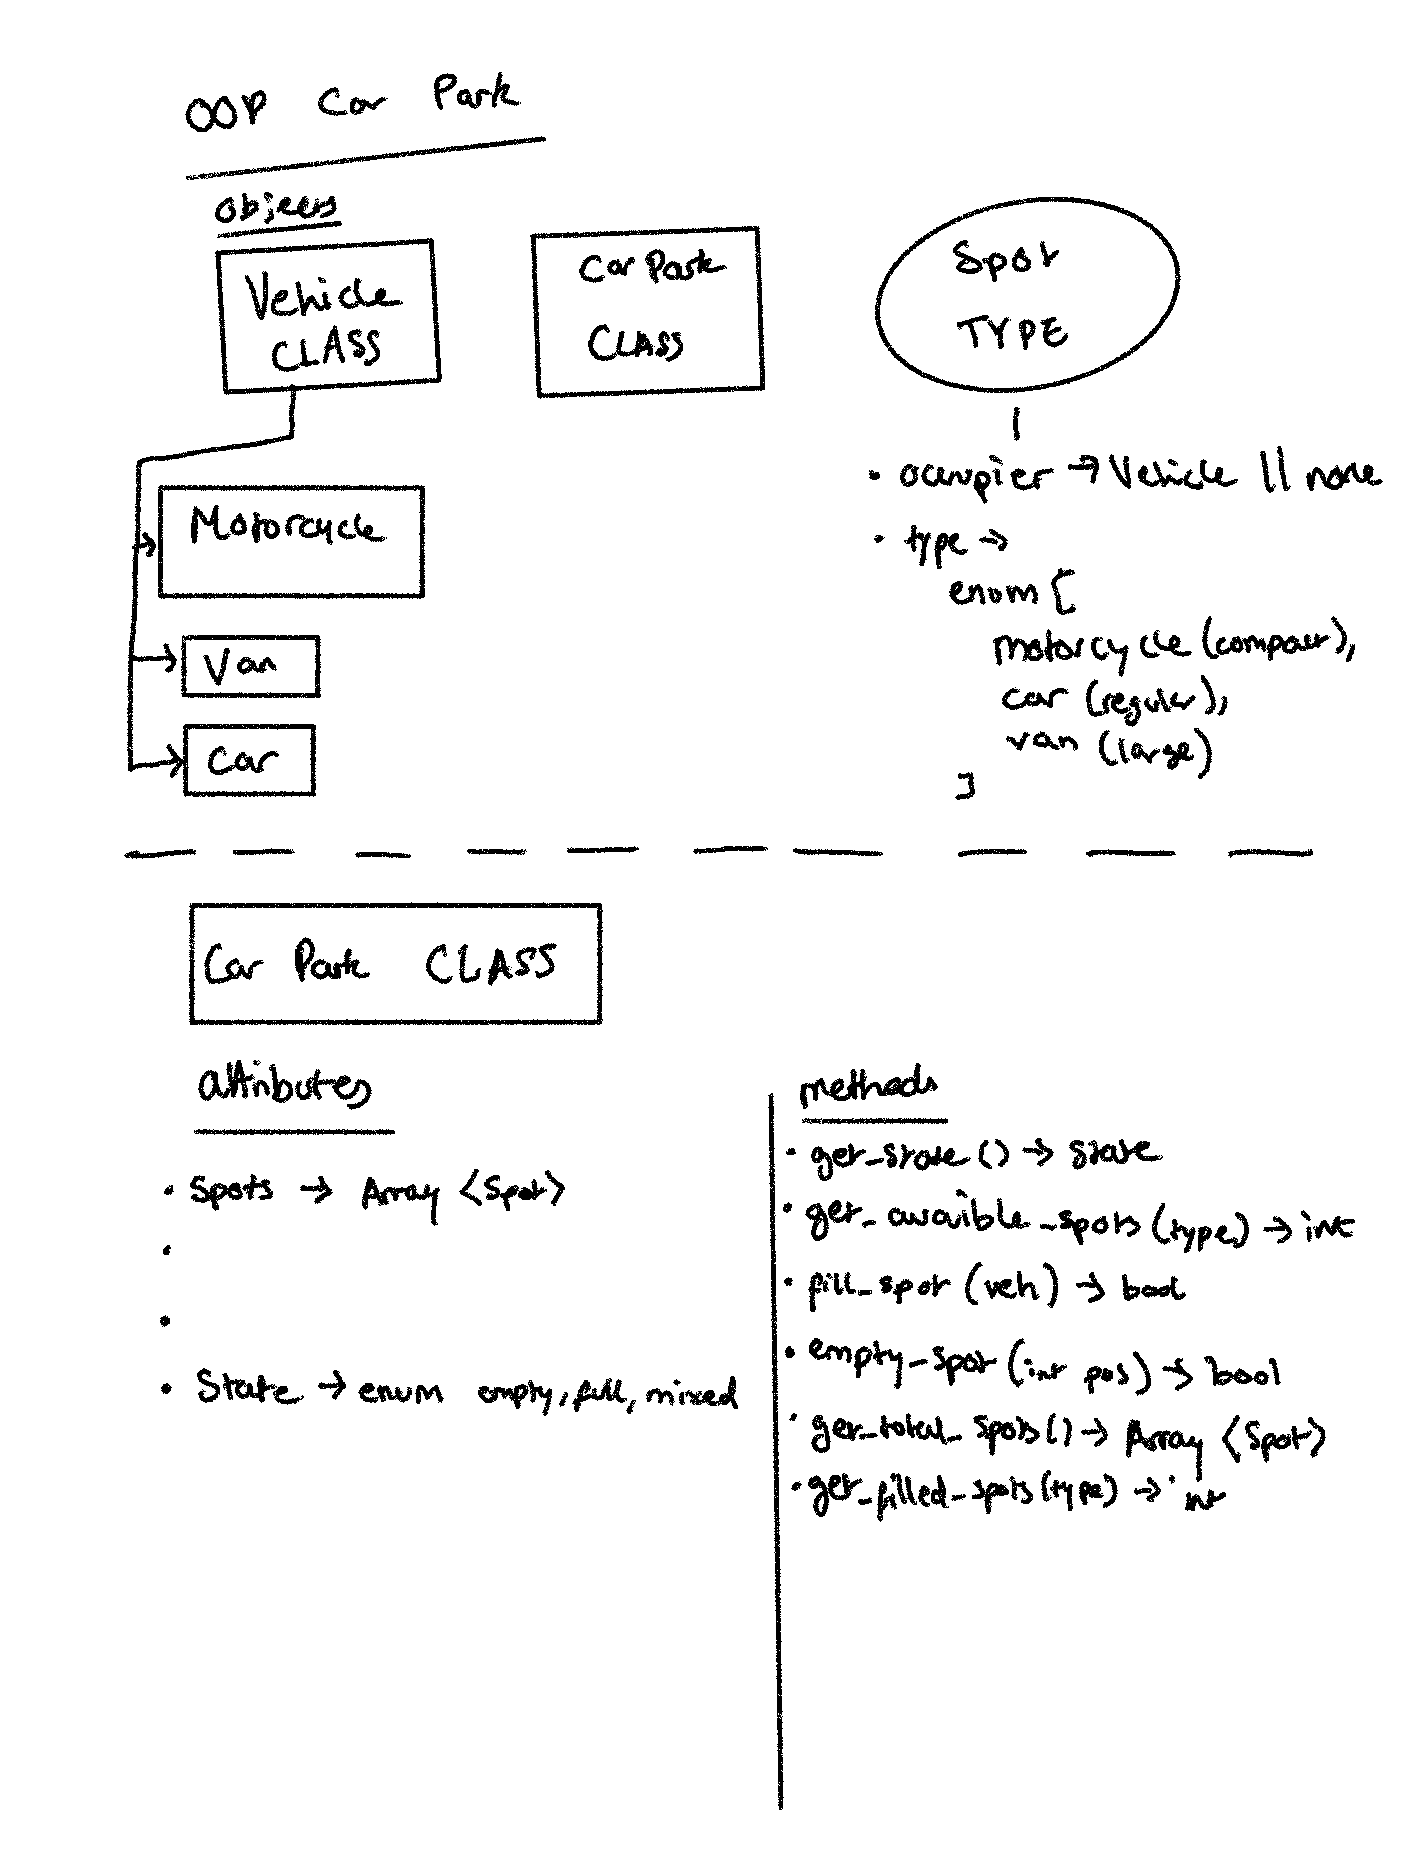 OOP Car Park
objects
Vehicle
CLASS
Car Park
CLASS
Spot
TYPE
Motorcycle
Van
Car
• occupier → Vehicle || none
• type →
enum [
motorcycle (compact),
car (regular),
van (large)
]
Car Park CLASS
attributes
• Spots → Array <Spot>
•
•
• State → enum empty, full, mixed
methods
• get_state() → state
• get_avaible_spots(type) → int
• fill_spot (veh) → bool
• empty_spot (int pos) → bool
• get_total_spots() → Array <Spot>
• get_filled_spots(type) → int